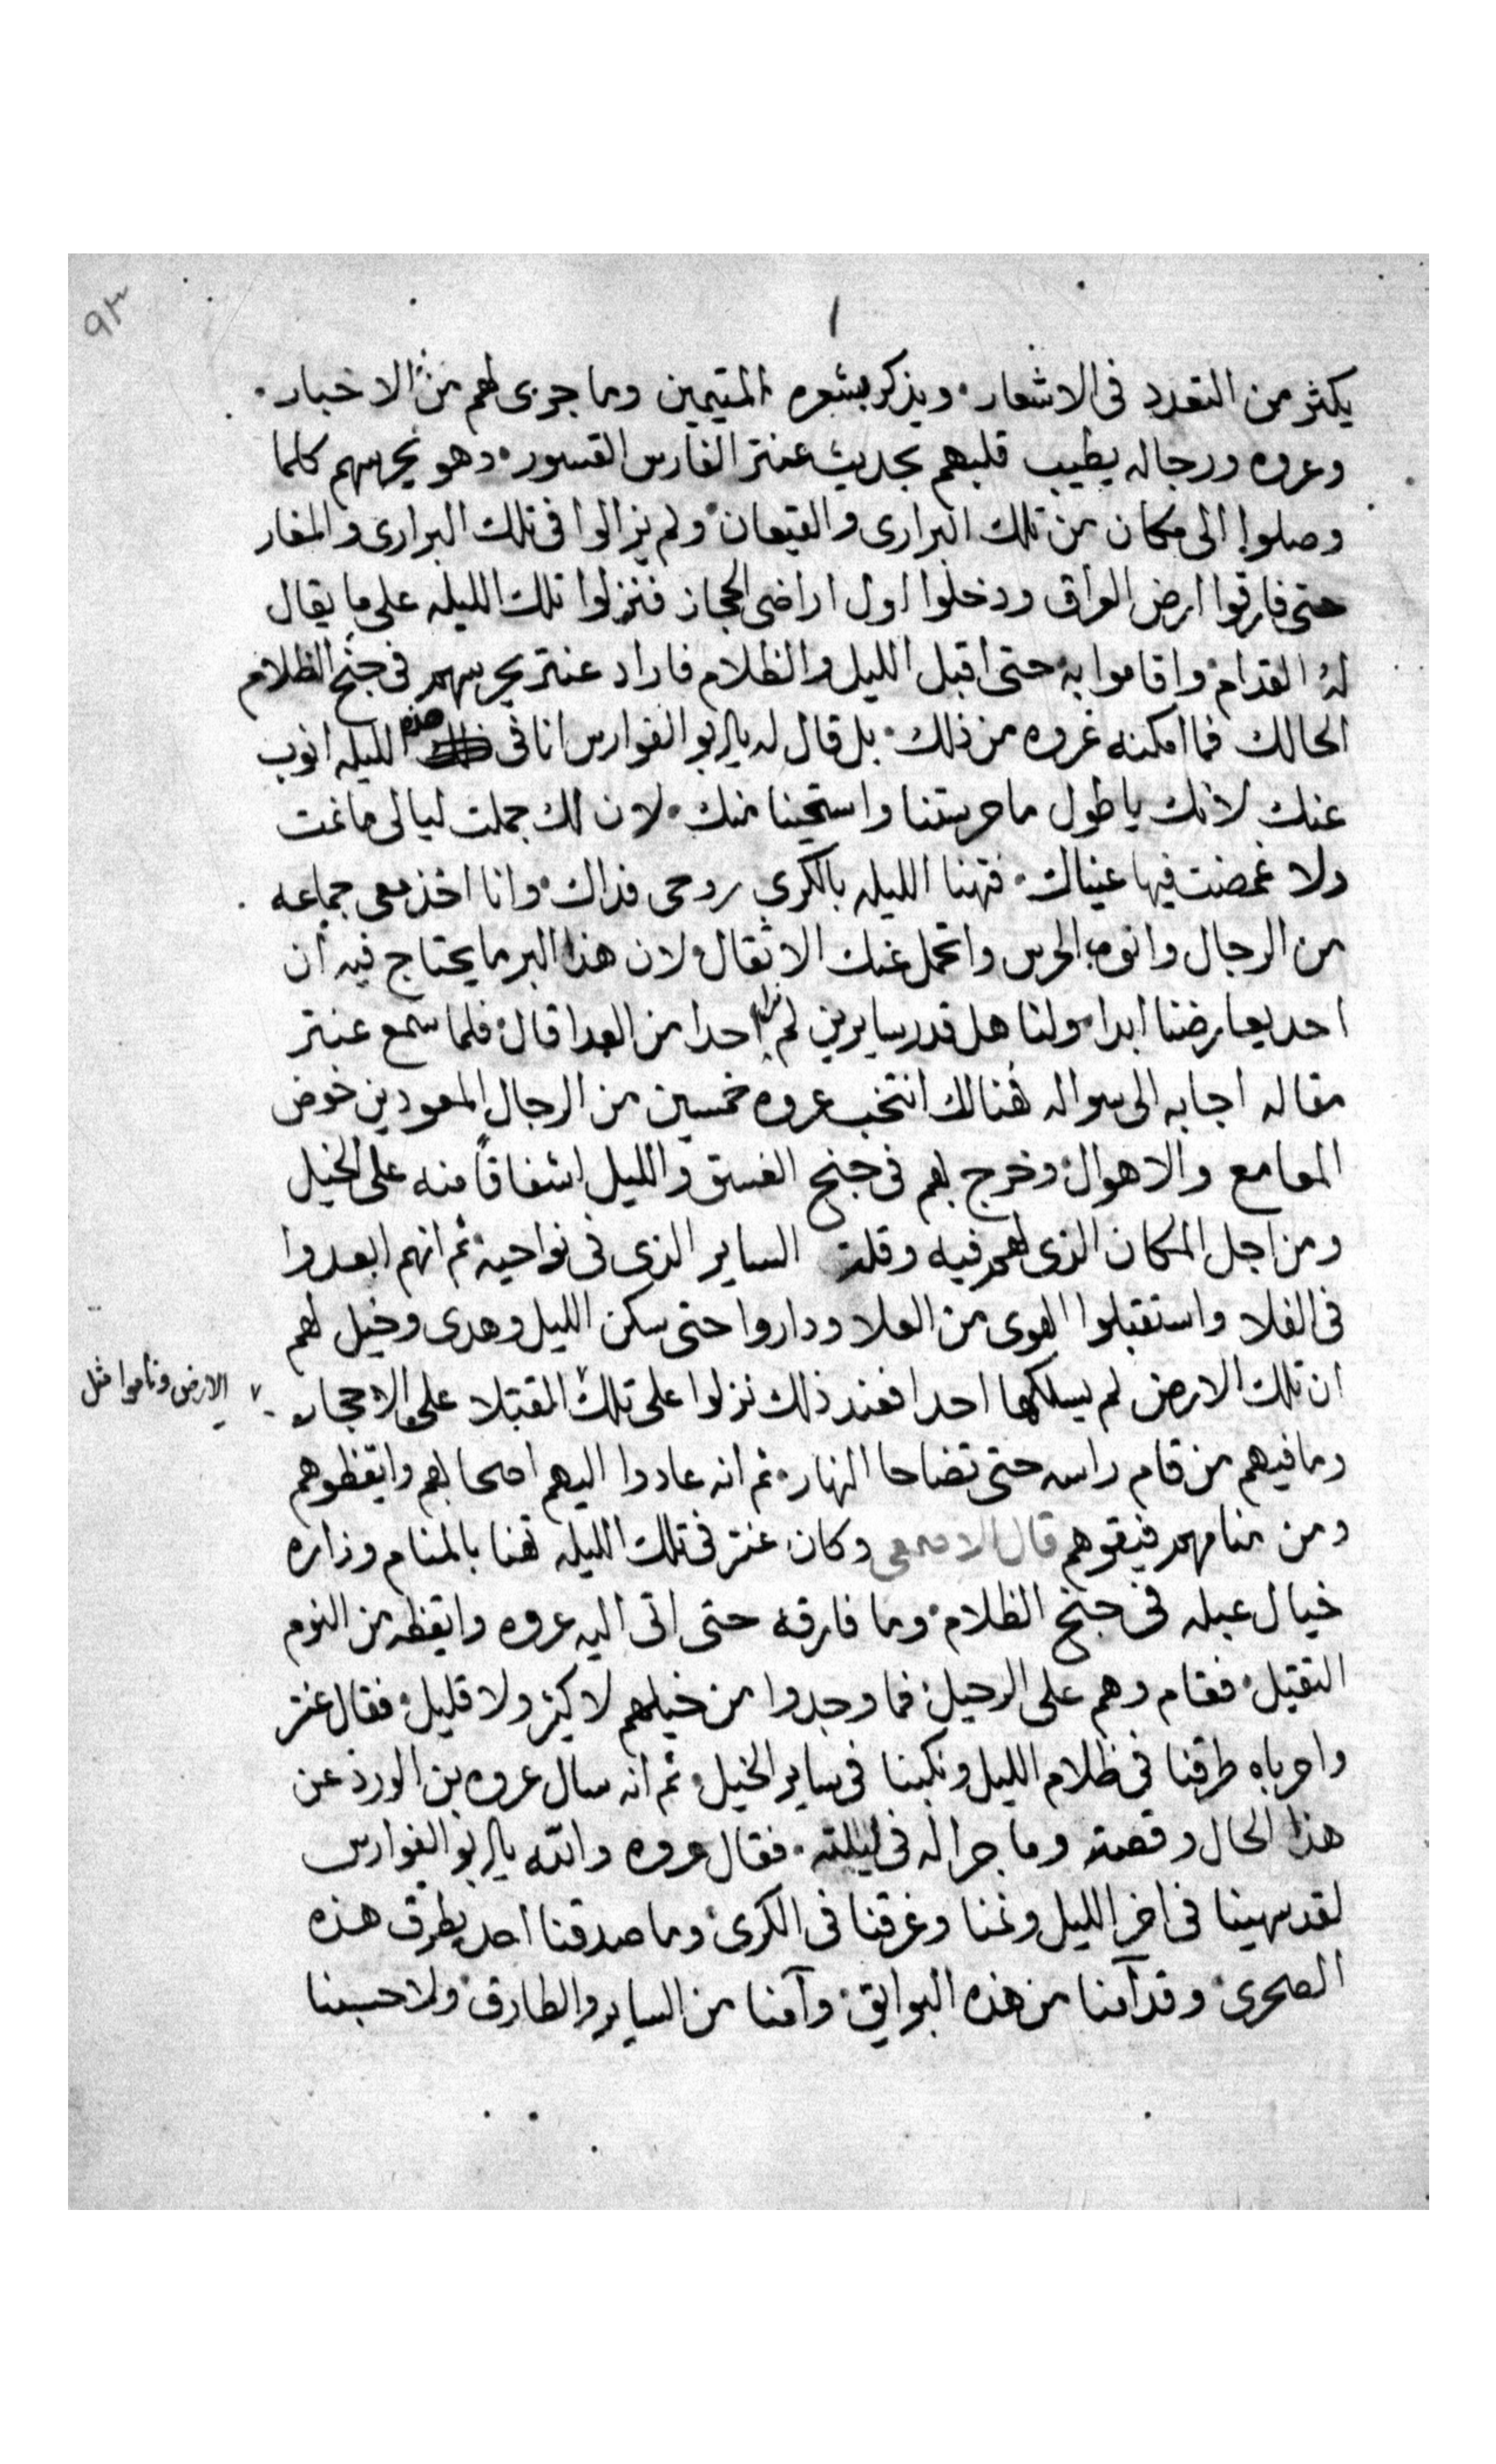 ٩٣
١
يكثر من التعدد فى الاشعار. ويذكر بشعره المتيمين وما جرى لهم من الاخبار.
وعروه ورجاله يطيب قلبهم بحديث عنتر الفارس القسور. وهو يحرسهم كلما
وصلوا الى مكان من تلك البرارى والقيعان ولم يزالوا فى تلك البرارى والمغار
حتى فارقوا ارض العراق ودخلوا اول اراضى الحجاز فنزلوا تلك الليله على ما يقال
له القدام واقاموا به حتى اقبل الليل والظلام فاراد عنتر يحرسهم فى جنح الظلام
الحالك فما امكنه عروه من ذلك. بل قال له يا ابو الفوارس انا فى هذه الليله انوب
عنك لانك يا طول ما حرستنا واستحينا منك. لان لك جملت ليالى ما نمت
ولا غمضت فيها عيناك. فتهنا الليله بالكرى روحى فداك. وانا اخذ معى جماعه
من الرجال وانوب الحرس واتحمل عنك الاثقال ولان هذا البر ما يحتاج فيه ان
احد يعارضنا ابدا. ولنا هل قدر سايرين لم نرا احدا من العدا قال فلما سمع عنتر
مقاله اجابه الى سواله هنالك انتخب عروه خمسين من الرجال المعودين خوض
المعامع والاهوال وخرج بهم فى جنح الغسق والليل اشفاقا منه على الخيل
ومن اجل المكان الذى هم فيه وقلت الساير الذى فى نواحيه ثم انهم ابعدوا
فى الفلا واستقبلوا الهوى من العلا وداروا حتى سكن الليل وهدى وخيل لهم
ان تلك الارض لم يسلكها احدا فعند ذلك نزلوا على تلك المقتبلا على الاحجار
الارض وناموا مثل
وما فيهم من قام راسه حتى تضاحا النهار. ثم انه عادوا اليهم اصحابهم وايقظوهم
ومن منامهم فيقوهم قال الاصمعى وكان عنتر فى تلك الليله تهنا بالمنام وزاره
خيال عبله فى جنح الظلام. وما فارقه حتى اتى اليه عروه وايقظه من النوم
الثقيل. فقام وهم على الرحيل. فما وجدوا من خيلهم لا كثير ولا قليل. فقال عنتر
واحرباه طرقنا فى ظلام الليل ونكبنا فى ساير الخيل. ثم انه سال عروه بن الورد عن
هذا الحال وقصته وما جرا له فى ليلته. فقال عروه والله يا ابو الفوارس
لقد سهينا فى اخر الليل ونمنا وغرقنا فى الكرى وما صدقنا احد يطرق هذه
الصحرى. وقد آمنا من هذه البوايق. وآمنا من الساير والطارق ولا حسبنا